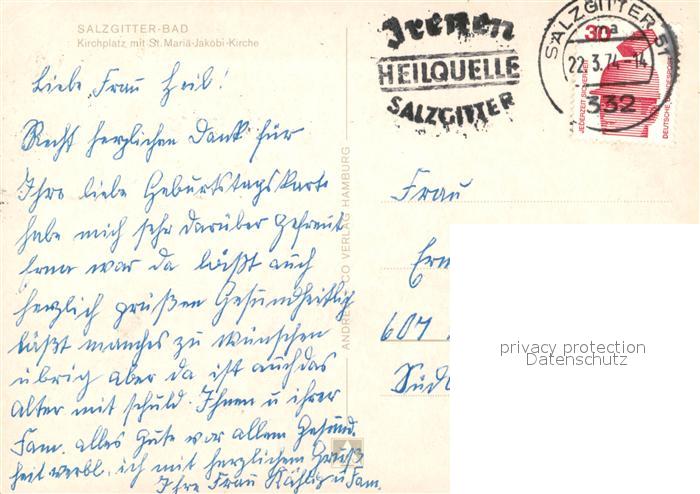 SALZGITTER-BAD
Kirchplatz mit St. Mariä-Jakobi-Kirche
HEILQUELLE
SALZGITTER
SALZGITTER 51
22.3.74-14
332
30
JEDERZEIT SICHERHEIT
DEUTSCHE BUNDESPOST
Liebe Frau Heil!
Recht herzlichen Dank für
Ihre liebe Geburtstagskarte
habe mich sehr darüber gefreut
Erna war da läßt auch
herzlich grüßen Gesundheitlich
läßt manches zu wünschen
übrig aber da ist auch das
Alter mit schuld. Ihnen u ihrer
Fam. alles Gute vor allem Gesund-
heit verbl. ich mit herzlichem Gruß
Ihre Frau u Fam.
ANDRES CO VERLAG HAMBURG
Frau
607
privacy protection
Datenschutz